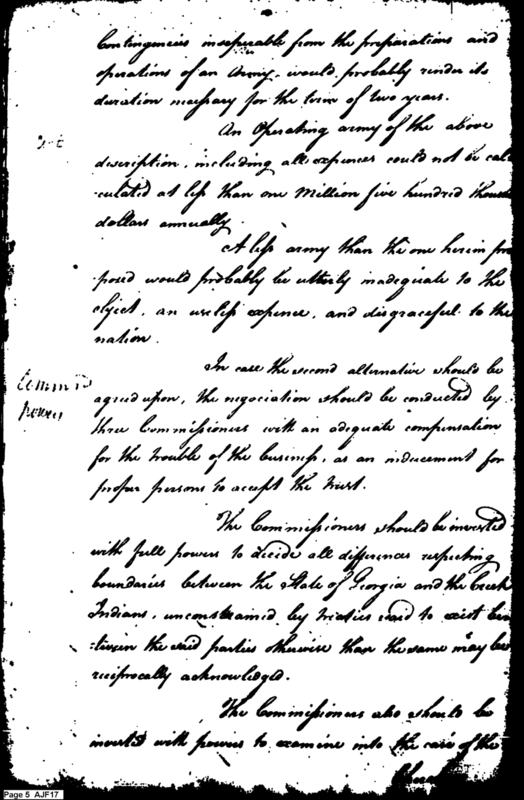 Contingencies inseparable from the preparations and
operations of an Army, would probably render its
duration necessary for the term of two years.
An Operating army of the above
description, including all expences could not be cal
-culated at less than one Million five hundred thousa
dollars annually.
A less army than the one herein pro
posed would probably be utterly inadequate to the
object, an useless expence, and disgraceful to the
nation.
In case the second alternative should be
agreed upon, the negociation should be conducted by
three Commissioners with an adequate compensation
for the trouble of the business, as an inducement for
proper persons to accept the trust.
The Commissioners should be invested
with full powers to decide all differences respecting
boundaries between the State of Georgia and the Creek
Indians, unconstrained by treaties said to exist be
-tween the said parties otherwise than the same may be
reciprocally acknowledged.
The Commissioners also should be
invested with powers to examine into the case of the
Commrs
powers
Page 5 AJF17